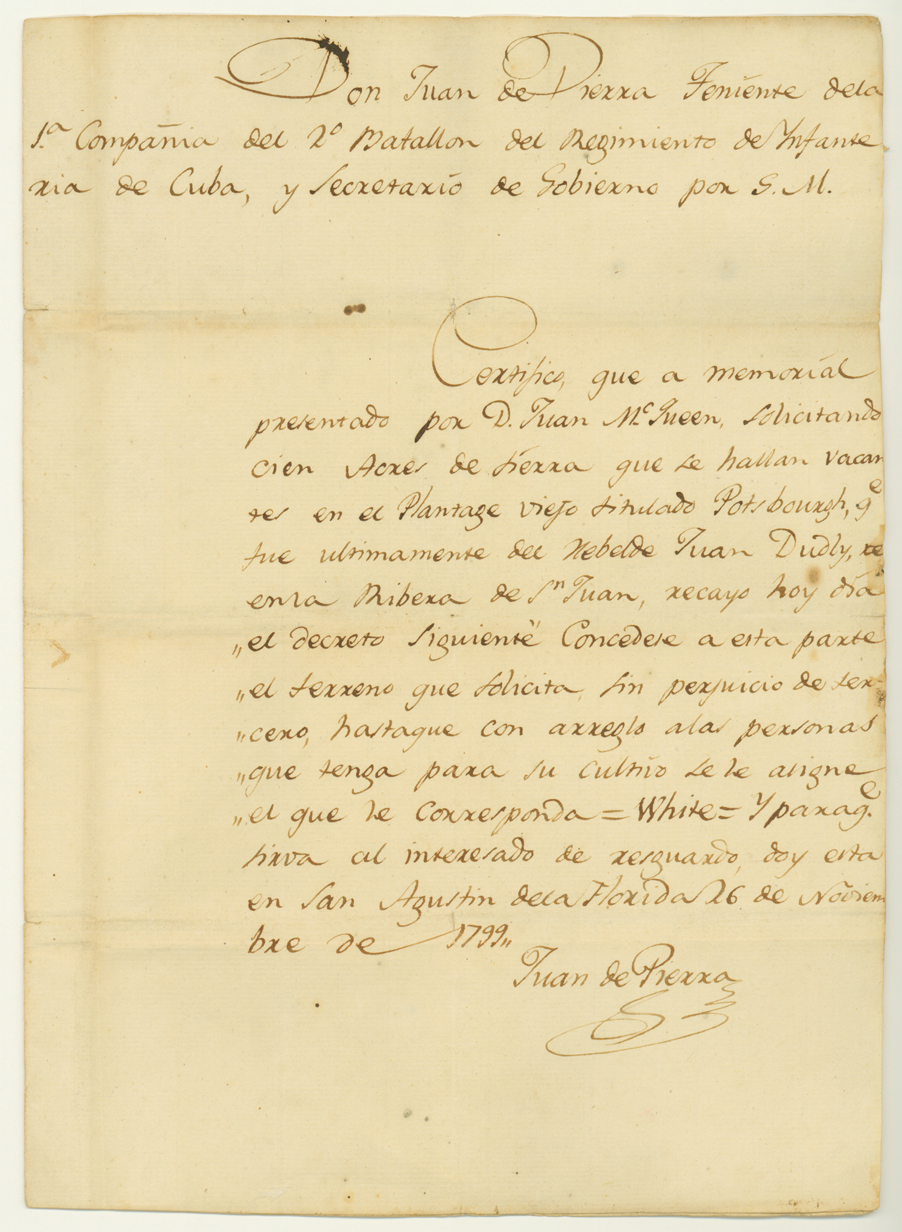 Don Juan de Pierra Teniente dela
1.ª Compañia del 2º Batallon del Regimiento de Ynfante
ria de Cuba, y Secretario de Gobierno por S. M.
Certifico, que a memorial
presentado por D. Juan Mc Queen, solicitando
cien Acres de tierra que se hallan vacan
tes en el Plantage viejo titulado Potsbourgh, qe
fue ultimamente del Rebelde Juan Dudly,
en la Ribera de Sn Juan, recayo hoy dia
„el decreto siguiente" Concedese a esta parte
„el terreno que solicita, sin perjuicio de ter-
„cero, hastaque con arreglo alas personas
„que tenga para su cultivo se le asigne
„el que le corresponda = White = Y paraqe.
sirva al interesado de resguardo, doy esta
en San Agustin dela Florida 26 de Noviem
bre de 1799„
Juan de Pierra